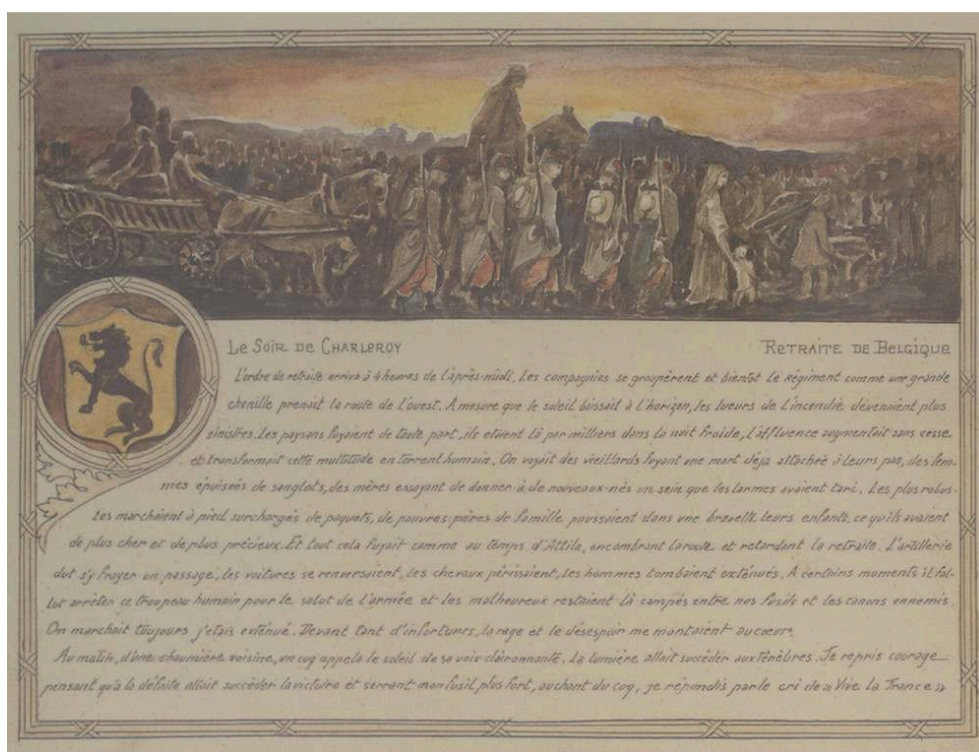 Le Soir de Charleroy
Retraite de Belgique
L'ordre de retraite arriva à 4 heures de l'après-midi. Les compagnies se groupèrent et bientôt le régiment comme une grande
chenille prenait la route de l'ouest. A mesure que le soleil baissait à l'horizon, les lueurs de l'incendie devenaient plus
sinistres. Les paysans fuyaient de toute part, ils étaient là par milliers dans la nuit froide, l'affluence augmentait sans cesse
et transformait cette multitude en torrent humain. On voyait des vieillards fuyant une mort déja attachée à leurs pas, des fem-
mes épuisées de sanglots, des mères essayant de donner à de nouveaux-nés un sein que les larmes avaient tari. Les plus robus-
tes marchaient à pied surchargés de paquets, de pauvres pères de famille poussaient dans une brouette leurs enfants, ce qu'ils avaient
de plus cher et de plus précieux. Et tout cela fuyait comme au temps d'Attila, encombrant la route et retardant la retraite. L'artillerie
dut s'y frayer un passage, les voitures se renversaient, les chevaux périssaient, les hommes tombaient exténués. A certains moments il fal-
lut arrêter ce troupeau humain pour le salut de l'armée et les malheureux restaient là campés entre nos fusils et les canons ennemis.
On marchait toujours j'étais exténué. Devant tant d'infortunes, la rage et le désespoir me montaient au cœur.
Au matin, d'une chaumière voisine, un coq appela le soleil de sa voix claironnante. La lumière allait succéder aux ténèbres. Je repris courage
pensant qu'à la défaite allait succéder la victoire et serrant mon fusil plus fort, au chant du coq, je répondis par le cri de » Vive la France »